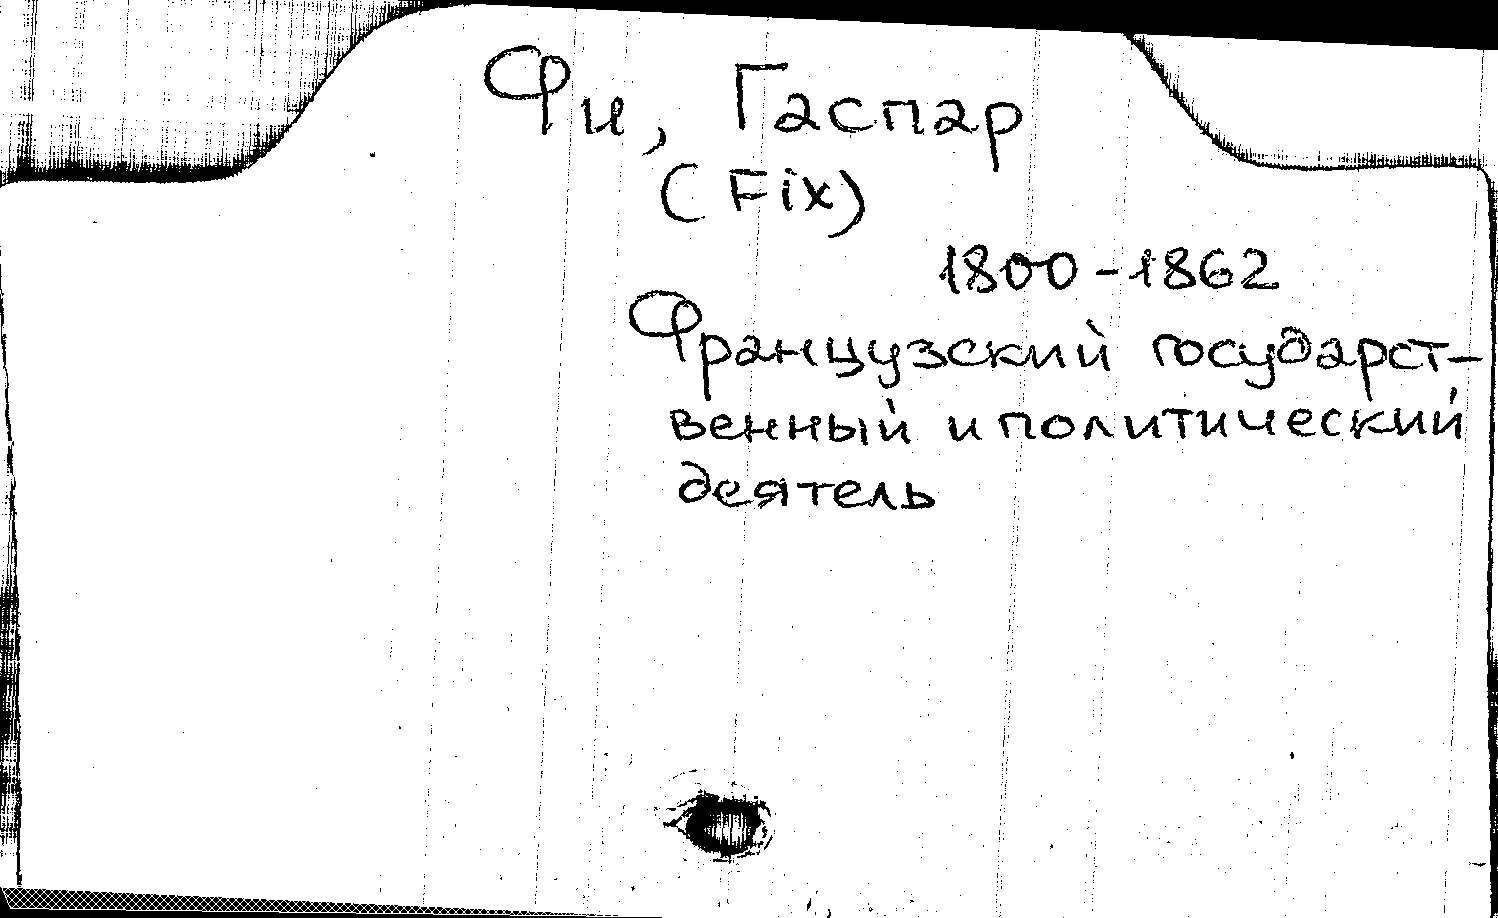 Фи, Гаспар
(Fix)
1800-1862
Французский государст-
венный и политический
деятель